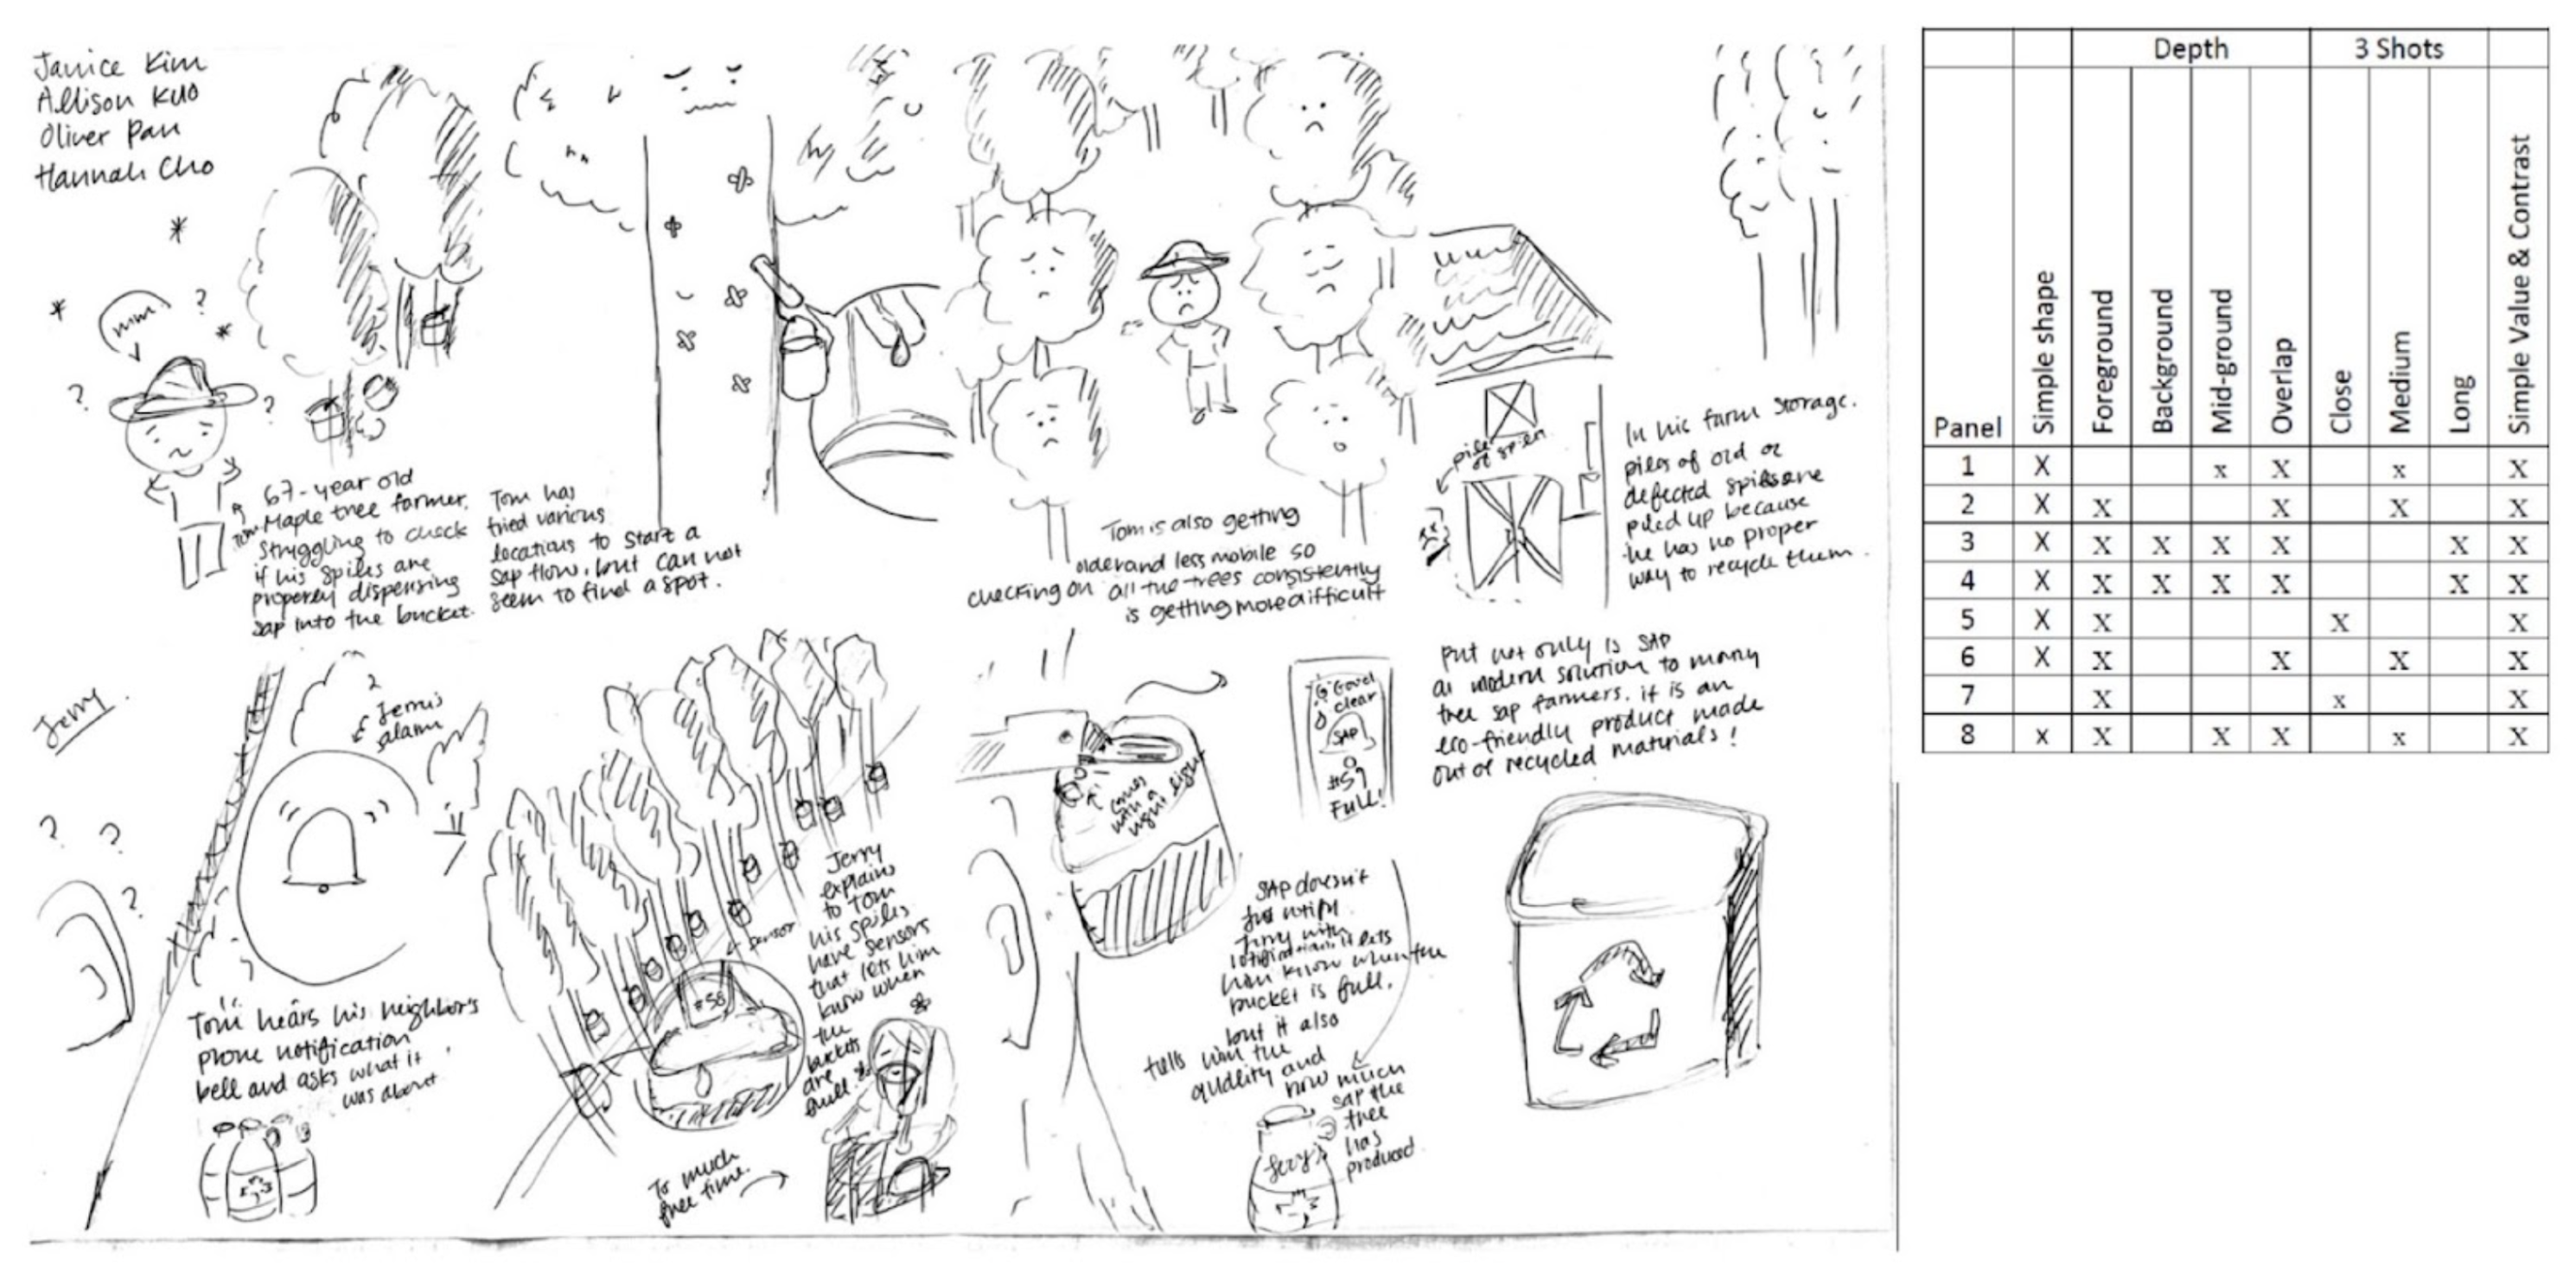 Janice Kim
Allison Kuo
Oliver Pan
Hannah Cho
mm.
?
?
?
67-year old
Tom
Maple tree farmer.
Struggling to check
if his spiles are
properly dispensing
sap into the bucket.
Tom has
tried various
locations to start a
sap flow, but can not
seem to find a spot.
Tom is also getting
older and less mobile so
checking on all the trees consistently
is getting more difficult
piles
of spiles
In his farm storage.
piles of old or
defected spiles are
piled up because
he has no proper
way to recycle them.
Jerry
?
?
?
Jerry's
alarm
Tom hears his neighbor's
phone notification
bell and asks what it
was about
sensor
#58
Jerry
explains
to Tom
his spiles
have sensors
that lets him
know when
the
buckets
are
full
To much
free time.
comes
with a
light
Good
clear
SAP
#59
Full!
SAP doesn't
just notify
Jerry with
it lets
him know when the
bucket is full,
but it also
tells him the
quality and
how much
sap the
tree
has
produced
Jerry's
But not only is SAP
a modern solution to many
tree sap farmers, it is an
eco-friendly product made
out of recycled materials!
Depth 3 Shots
Panel Simple shape Foreground Background Mid-ground Overlap Close Medium Long Simple Value & Contrast
1 X x X x X
2 X X X X X
3 X X X X X X X
4 X X X X X X X
5 X X X X
6 X X X X X
7 X x X
8 x X X X x X